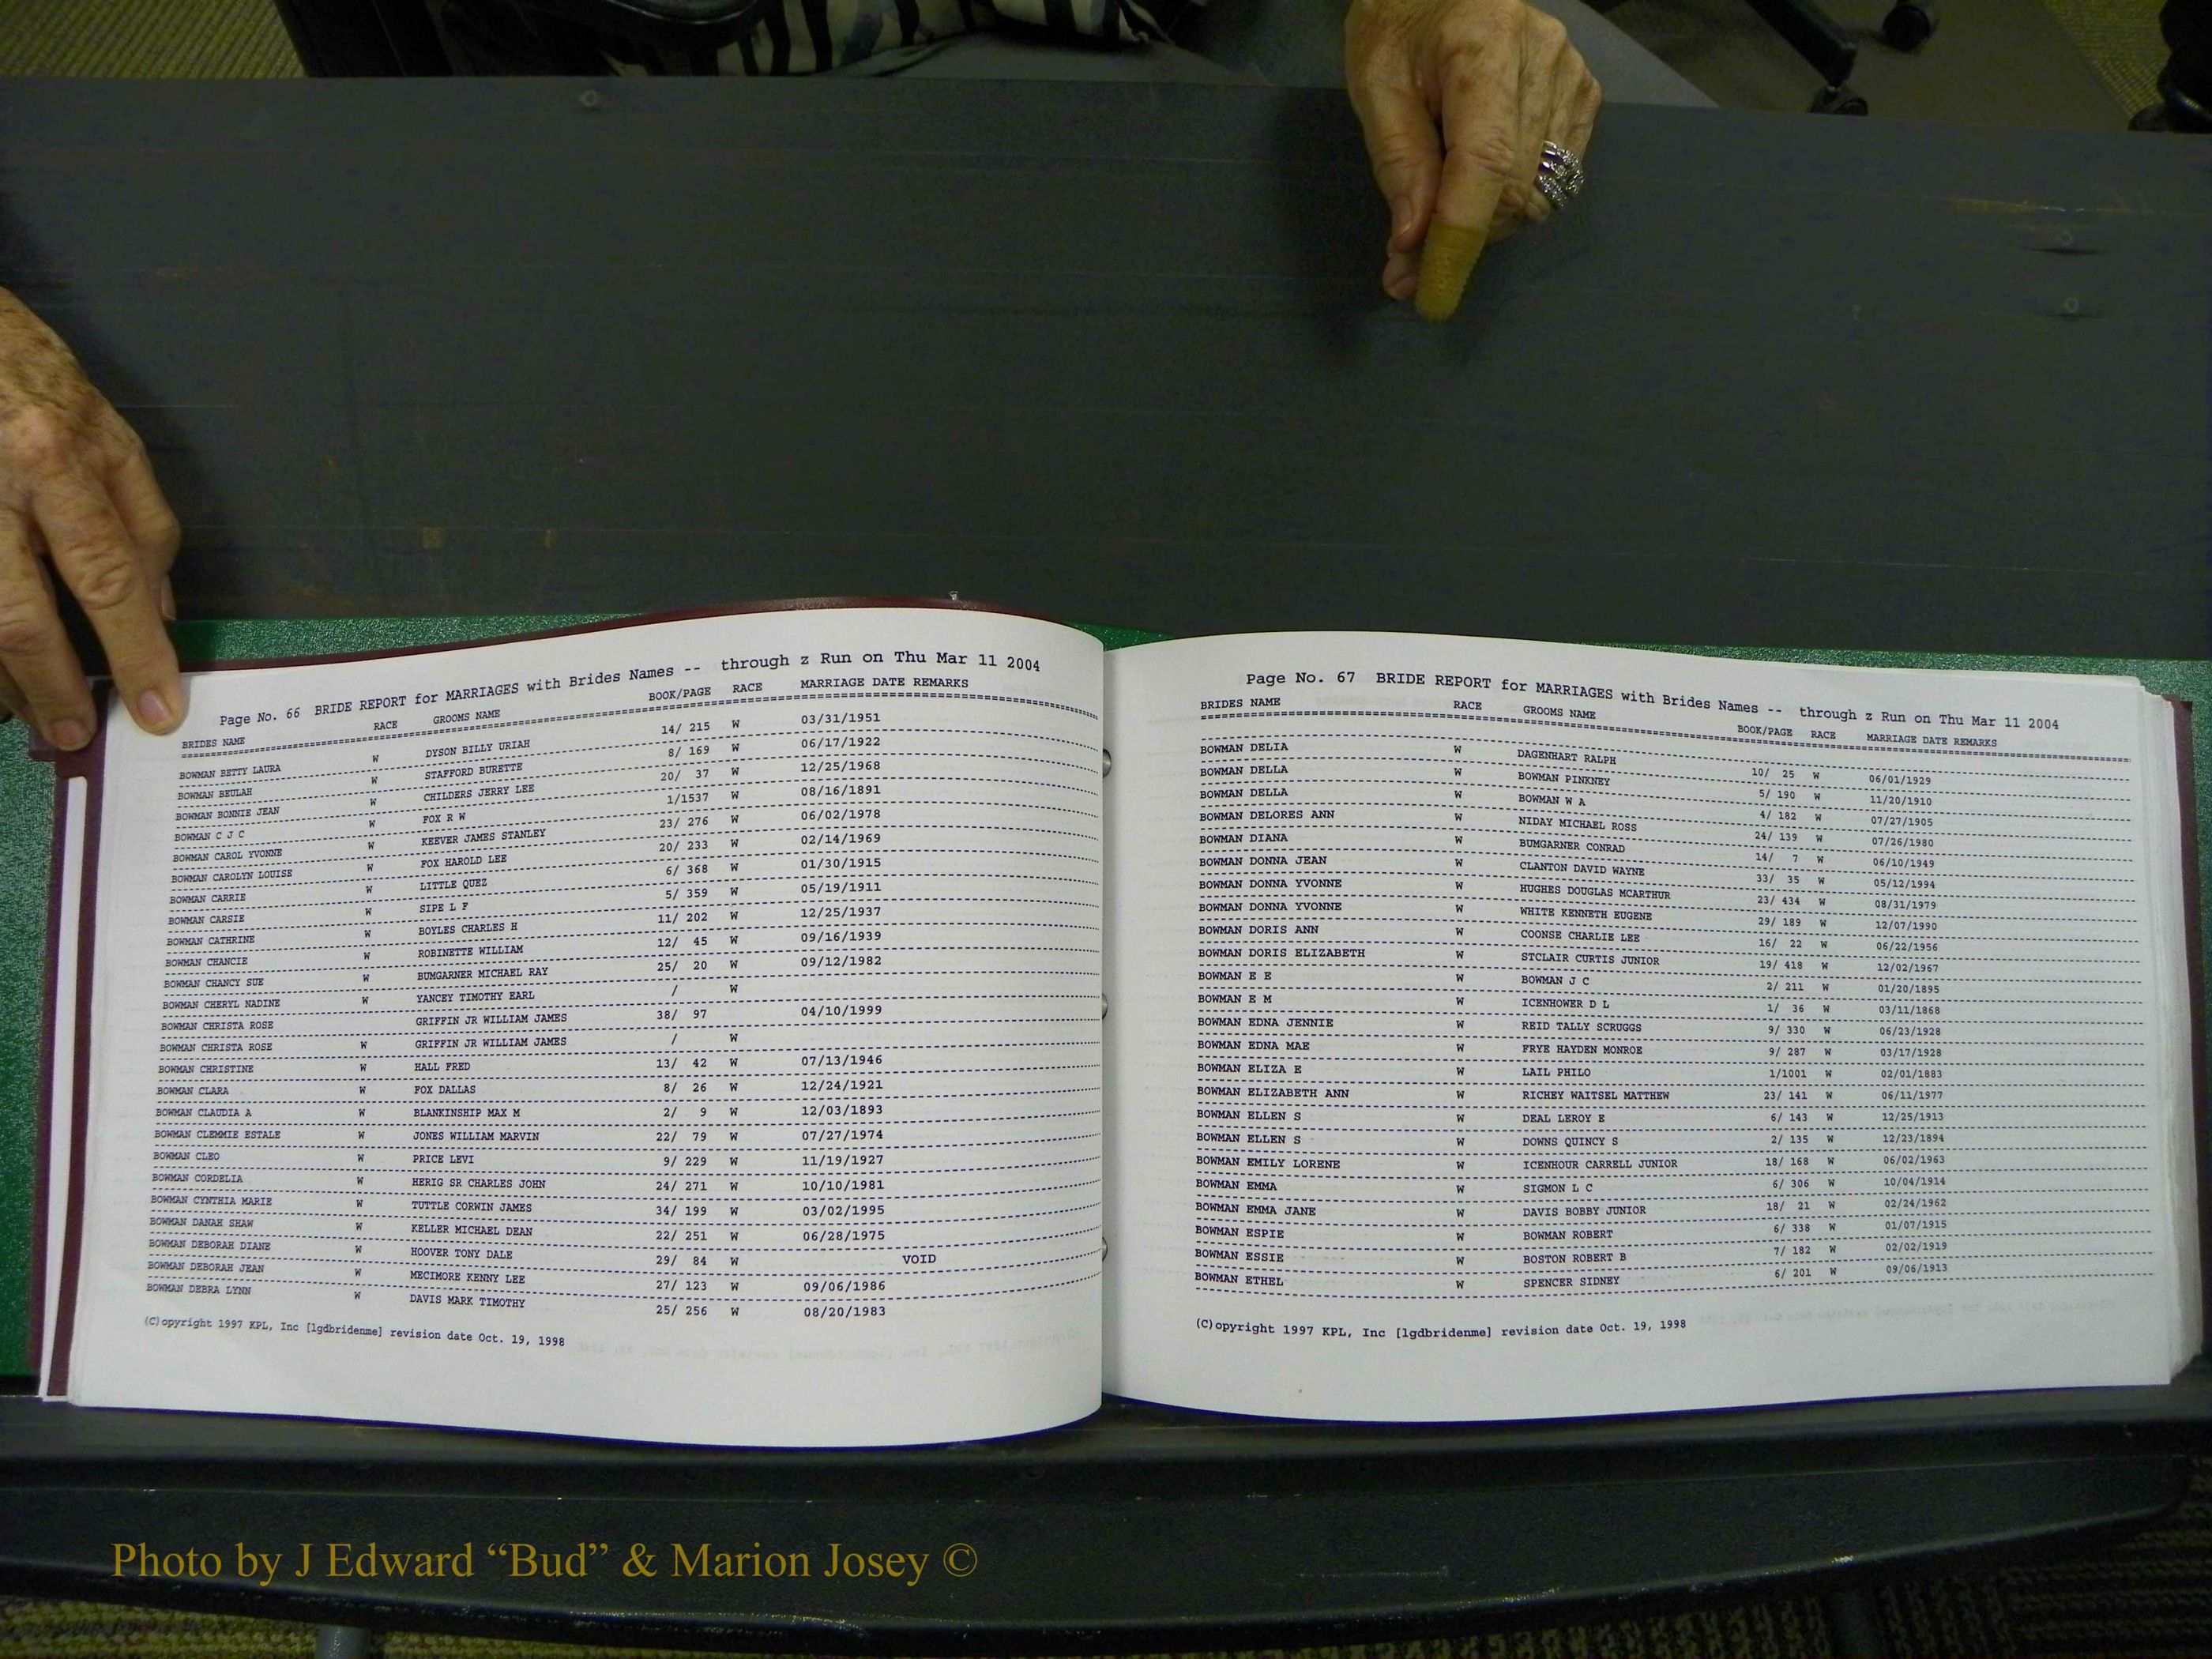 Page No. 66 BRIDE REPORT for MARRIAGES with Brides Names -- through z Run on Thu Mar 11 2004
BRIDES NAME RACE GROOMS NAME BOOK/PAGE RACE MARRIAGE DATE REMARKS
BOWMAN BETTY LAURA W DYSON BILLY URIAH 14/ 215 W 03/31/1951
BOWMAN BEULAH W STAFFORD BURETTE 8/ 169 W 06/17/1922
BOWMAN BONNIE JEAN W CHILDERS JERRY LEE 20/ 37 W 12/25/1968
BOWMAN C J C W FOX R W 1/1537 W 08/16/1891
BOWMAN CAROL YVONNE W KEEVER JAMES STANLEY 23/ 276 W 06/02/1978
BOWMAN CAROLYN LOUISE W FOX HAROLD LEE 20/ 233 W 02/14/1969
BOWMAN CARRIE W LITTLE QUEZ 6/ 368 W 01/30/1915
BOWMAN CARSIE W SIPE L F 5/ 359 W 05/19/1911
BOWMAN CATHRINE W BOYLES CHARLES H 11/ 202 W 12/25/1937
BOWMAN CHANCIE W ROBINETTE WILLIAM 12/ 45 W 09/16/1939
BOWMAN CHANCY SUE W BUMGARNER MICHAEL RAY 25/ 20 W 09/12/1982
BOWMAN CHERYL NADINE W YANCEY TIMOTHY EARL / W
BOWMAN CHRISTA ROSE GRIFFIN JR WILLIAM JAMES 38/ 97 04/10/1999
BOWMAN CHRISTA ROSE W GRIFFIN JR WILLIAM JAMES / W
BOWMAN CHRISTINE W HALL FRED 13/ 42 W 07/13/1946
BOWMAN CLARA W FOX DALLAS 8/ 26 W 12/24/1921
BOWMAN CLAUDIA A W BLANKINSHIP MAX M 2/ 9 W 12/03/1893
BOWMAN CLEMMIE ESTALE W JONES WILLIAM MARVIN 22/ 79 W 07/27/1974
BOWMAN CLEO W PRICE LEVI 9/ 229 W 11/19/1927
BOWMAN CORDELIA W HERIG SR CHARLES JOHN 24/ 271 W 10/10/1981
BOWMAN CYNTHIA MARIE W TUTTLE CORWIN JAMES 34/ 199 W 03/02/1995
BOWMAN DANAH SHAW W KELLER MICHAEL DEAN 22/ 251 W 06/28/1975
BOWMAN DEBORAH DIANE W HOOVER TONY DALE 29/ 84 W VOID
BOWMAN DEBORAH JEAN W MECIMORE KENNY LEE 27/ 123 W 09/06/1986
BOWMAN DEBRA LYNN W DAVIS MARK TIMOTHY 25/ 256 W 08/20/1983
(C)opyright 1997 KPL, Inc [lgdbridenme] revision date Oct. 19, 1998
Page No. 67 BRIDE REPORT for MARRIAGES with Brides Names -- through z Run on Thu Mar 11 2004
BRIDES NAME RACE GROOMS NAME BOOK/PAGE RACE MARRIAGE DATE REMARKS
BOWMAN DELIA W DAGENHART RALPH 10/ 25 W 06/01/1929
BOWMAN DELLA W BOWMAN PINKNEY 5/ 190 W 11/20/1910
BOWMAN DELLA W BOWMAN W A 4/ 182 W 07/27/1905
BOWMAN DELORES ANN W NIDAY MICHAEL ROSS 24/ 139 W 07/26/1980
BOWMAN DIANA W BUMGARNER CONRAD 14/ 7 W 06/10/1949
BOWMAN DONNA JEAN W CLANTON DAVID WAYNE 33/ 35 W 05/12/1994
BOWMAN DONNA YVONNE W HUGHES DOUGLAS MCARTHUR 23/ 434 W 08/31/1979
BOWMAN DONNA YVONNE W WHITE KENNETH EUGENE 29/ 189 W 12/07/1990
BOWMAN DORIS ANN W COONSE CHARLIE LEE 16/ 22 W 06/22/1956
BOWMAN DORIS ELIZABETH W STCLAIR CURTIS JUNIOR 19/ 418 W 12/02/1967
BOWMAN E E W BOWMAN J C 2/ 211 W 01/20/1895
BOWMAN E M W ICENHOWER D L 1/ 36 W 03/11/1868
BOWMAN EDNA JENNIE W REID TALLY SCRUGGS 9/ 330 W 06/23/1928
BOWMAN EDNA MAE W FRYE HAYDEN MONROE 9/ 287 W 03/17/1928
BOWMAN ELIZA E W LAIL PHILO 1/1001 W 02/01/1883
BOWMAN ELIZABETH ANN W RICHEY WAITSEL MATTHEW 23/ 141 W 06/11/1977
BOWMAN ELLEN S W DEAL LEROY E 6/ 143 W 12/25/1913
BOWMAN ELLEN S W DOWNS QUINCY S 2/ 135 W 12/23/1894
BOWMAN EMILY LORENE W ICENHOUR CARRELL JUNIOR 18/ 168 W 06/02/1963
BOWMAN EMMA W SIGMON L C 6/ 306 W 10/04/1914
BOWMAN EMMA JANE W DAVIS BOBBY JUNIOR 18/ 21 W 02/24/1962
BOWMAN ESPIE W BOWMAN ROBERT 6/ 338 W 01/07/1915
BOWMAN ESSIE W BOSTON ROBERT B 7/ 182 W 02/02/1919
BOWMAN ETHEL W SPENCER SIDNEY 6/ 201 W 09/06/1913
(C)opyright 1997 KPL, Inc [lgdbridenme] revision date Oct. 19, 1998
Photo by J Edward “Bud” & Marion Josey ©